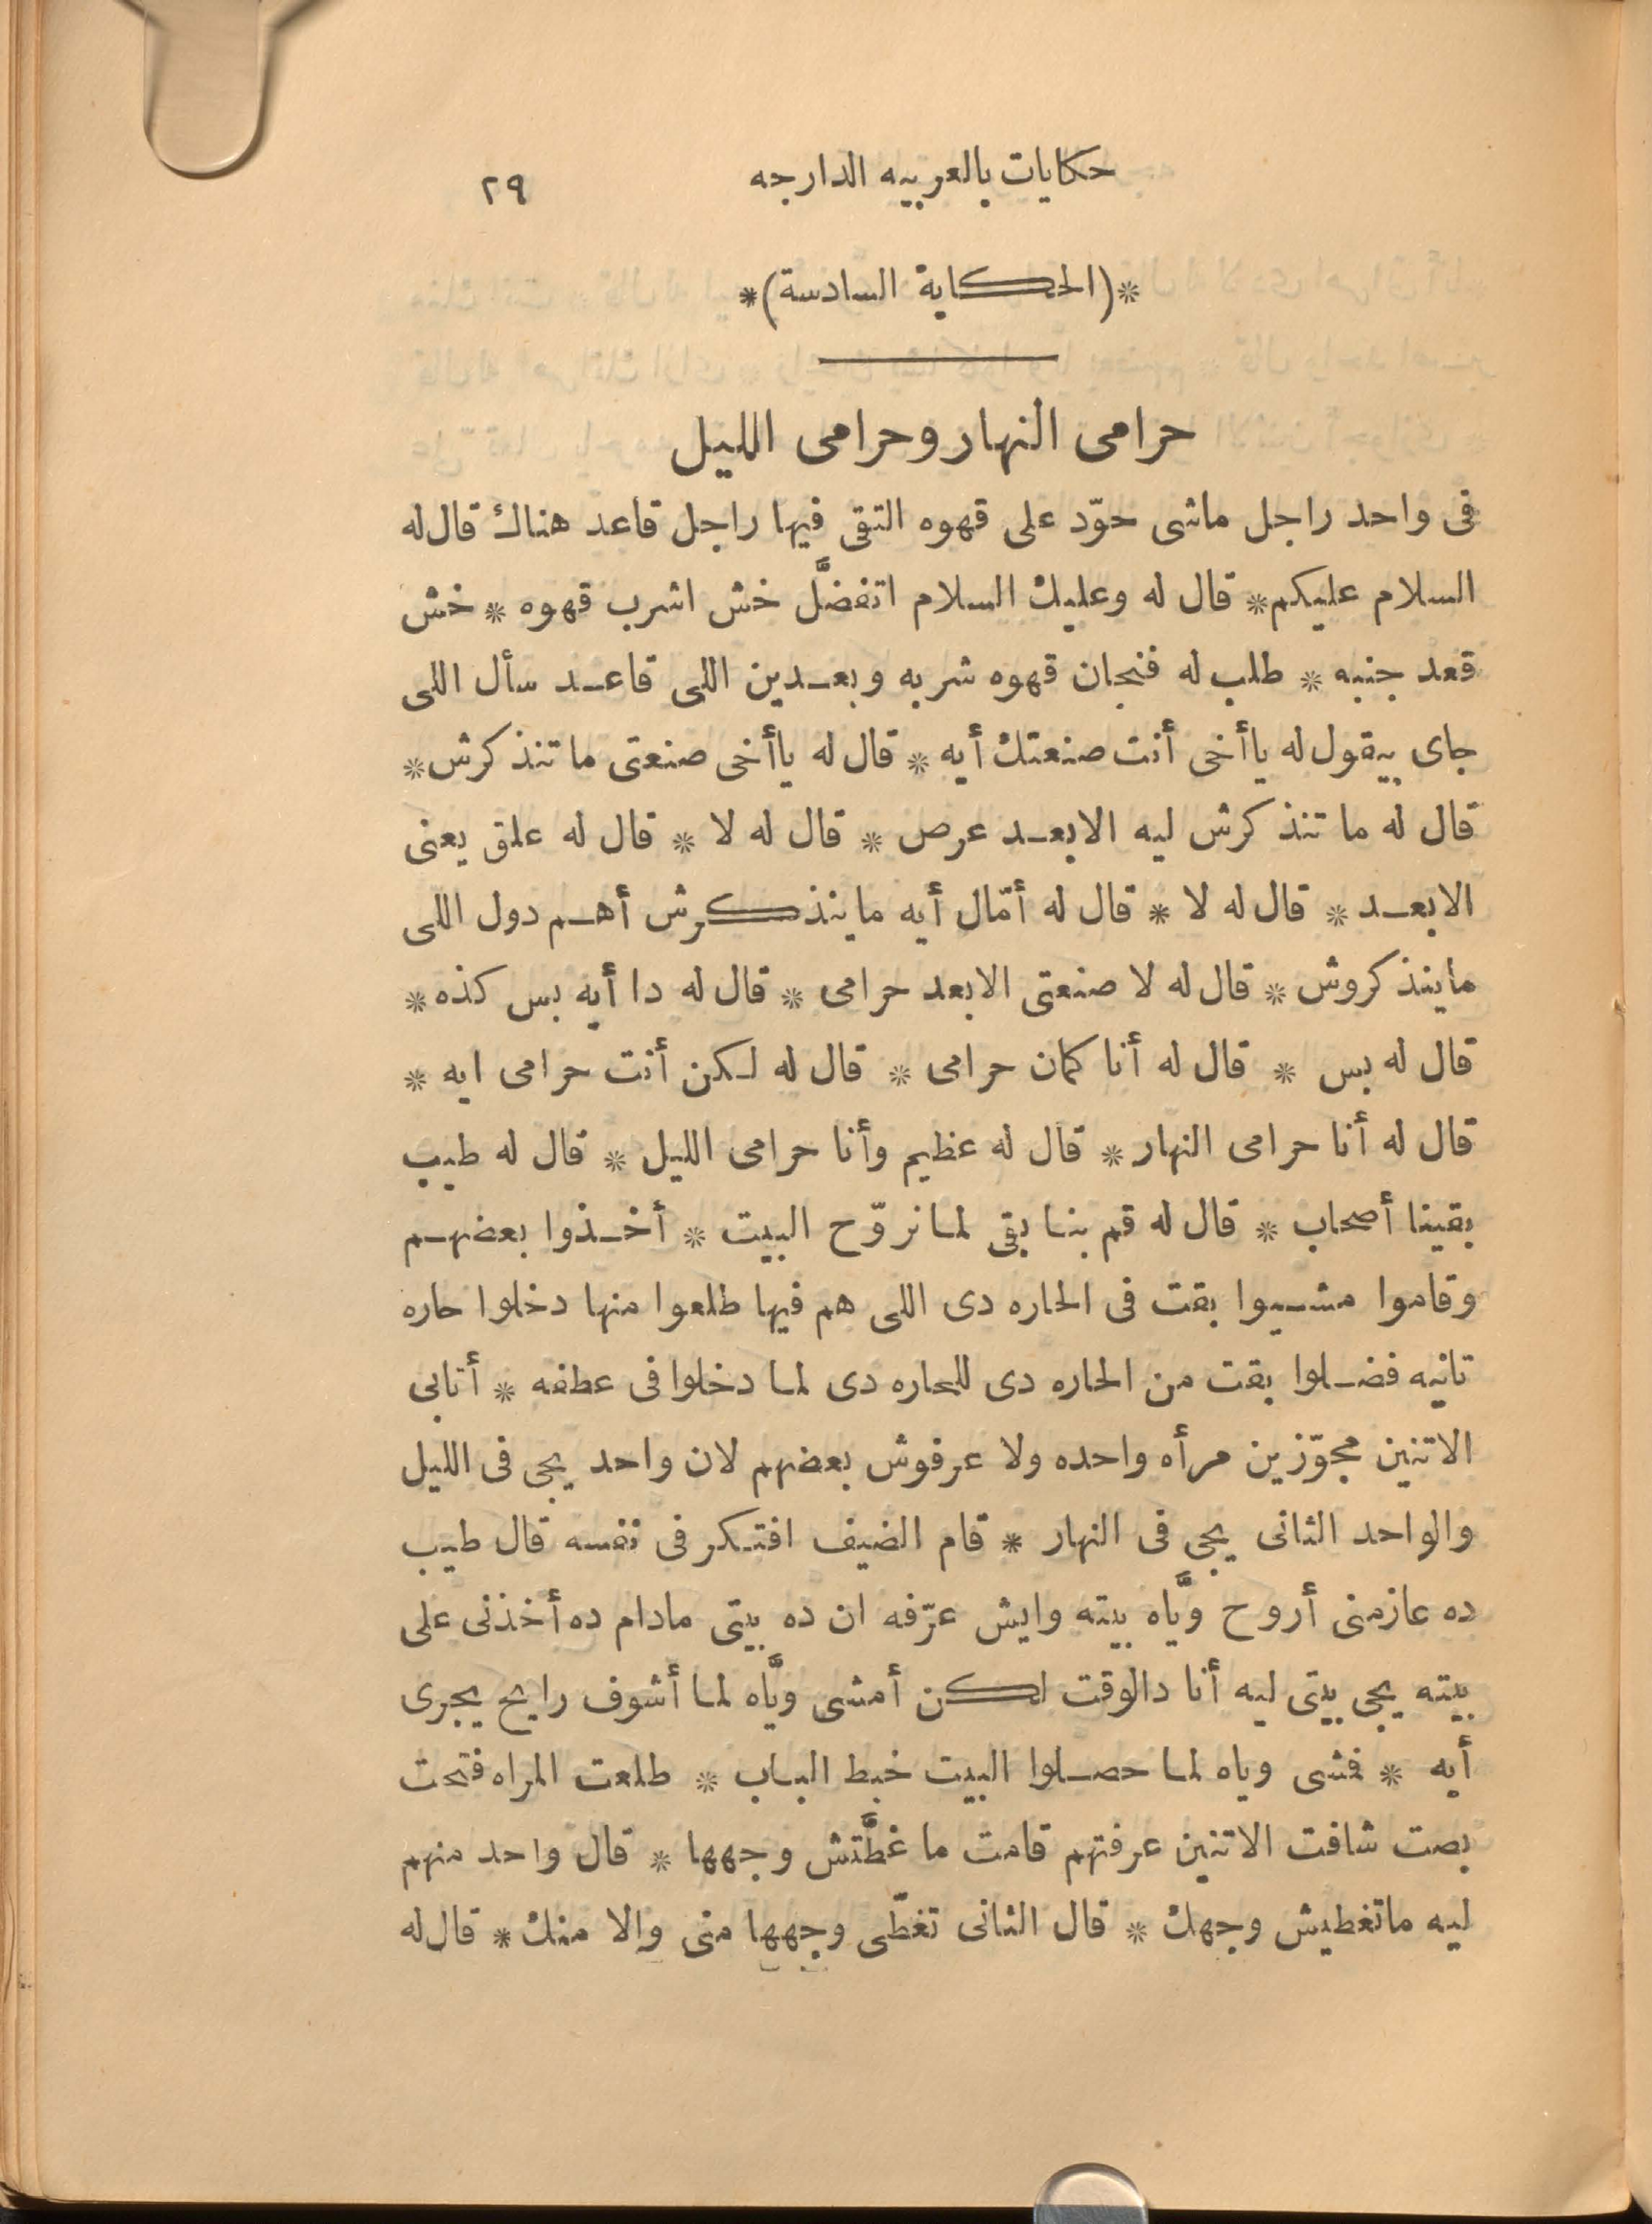 حكايات بالعربيه الدارجه ٢٩
*(الحكاية السادسة)*
حرامى النهار وحرامى الليل
فى واحد راجل ماشى حوّد على قهوه التقى فيها راجل قاعد هناك قال له
السلام عليكم * قال له وعليك السلام اتفضَّل خش اشرب قهوه * خش
قعد جنبه * طلب له فنجان قهوه شربه وبعدين اللى قاعد سأل اللى
جاى بيقول له ياأخى أنت صنعتك أيه * قال له ياأخى صنعتى ما تنذكرش *
قال له ما تنذكرش ليه الابعد عرص * قال له لا * قال له علق يعنى
الابعد * قال له لا * قال له أمّال أيه ماينذكرش أهم دول اللى
ماينذكروش * قال له لا صنعتى الابعد حرامى * قال له دا أيه بس كذه *
قال له بس * قال له أنا كمان حرامى * قال له لكن أنت حرامى ايه *
قال له أنا حرامى النهار * قال له عظيم وأنا حرامى الليل * قال له طيب
بقينا أصحاب * قال له قم بنا بقى لما نروّح البيت * أخذوا بعضهم
وقاموا مشيوا بقت فى الحاره دى اللى هم فيها طلعوا منها دخلوا حاره
تانيه فضلوا بقت من الحاره دى للحاره دى لما دخلوا فى عطفه * أتابى
الاتنين مجوّزين مرأه واحده ولا عرفوش بعضهم لان واحد يجى فى الليل
والواحد الثانى يجى فى النهار * قام الضيف افتكر فى نفسه قال طيب
ده عازمنى أروح ويَّاه بيته وايش عرّفه ان ده بيتى مادام ده أخذنى على
بيته يجى بيتى ليه أنا دالوقت لكن أمشى ويَّاه لما أشوف رايح يجرى
أيه * فمشى وياه لما حصلوا البيت خبط الباب * طلعت المراه فتحت
بصت شافت الاتنين عرفتهم قامت ما غطَّتش وجهها * قال واحد منهم
ليه ماتغطيش وجهك * قال الثانى تغطّى وجهها منى والا منك * قال له